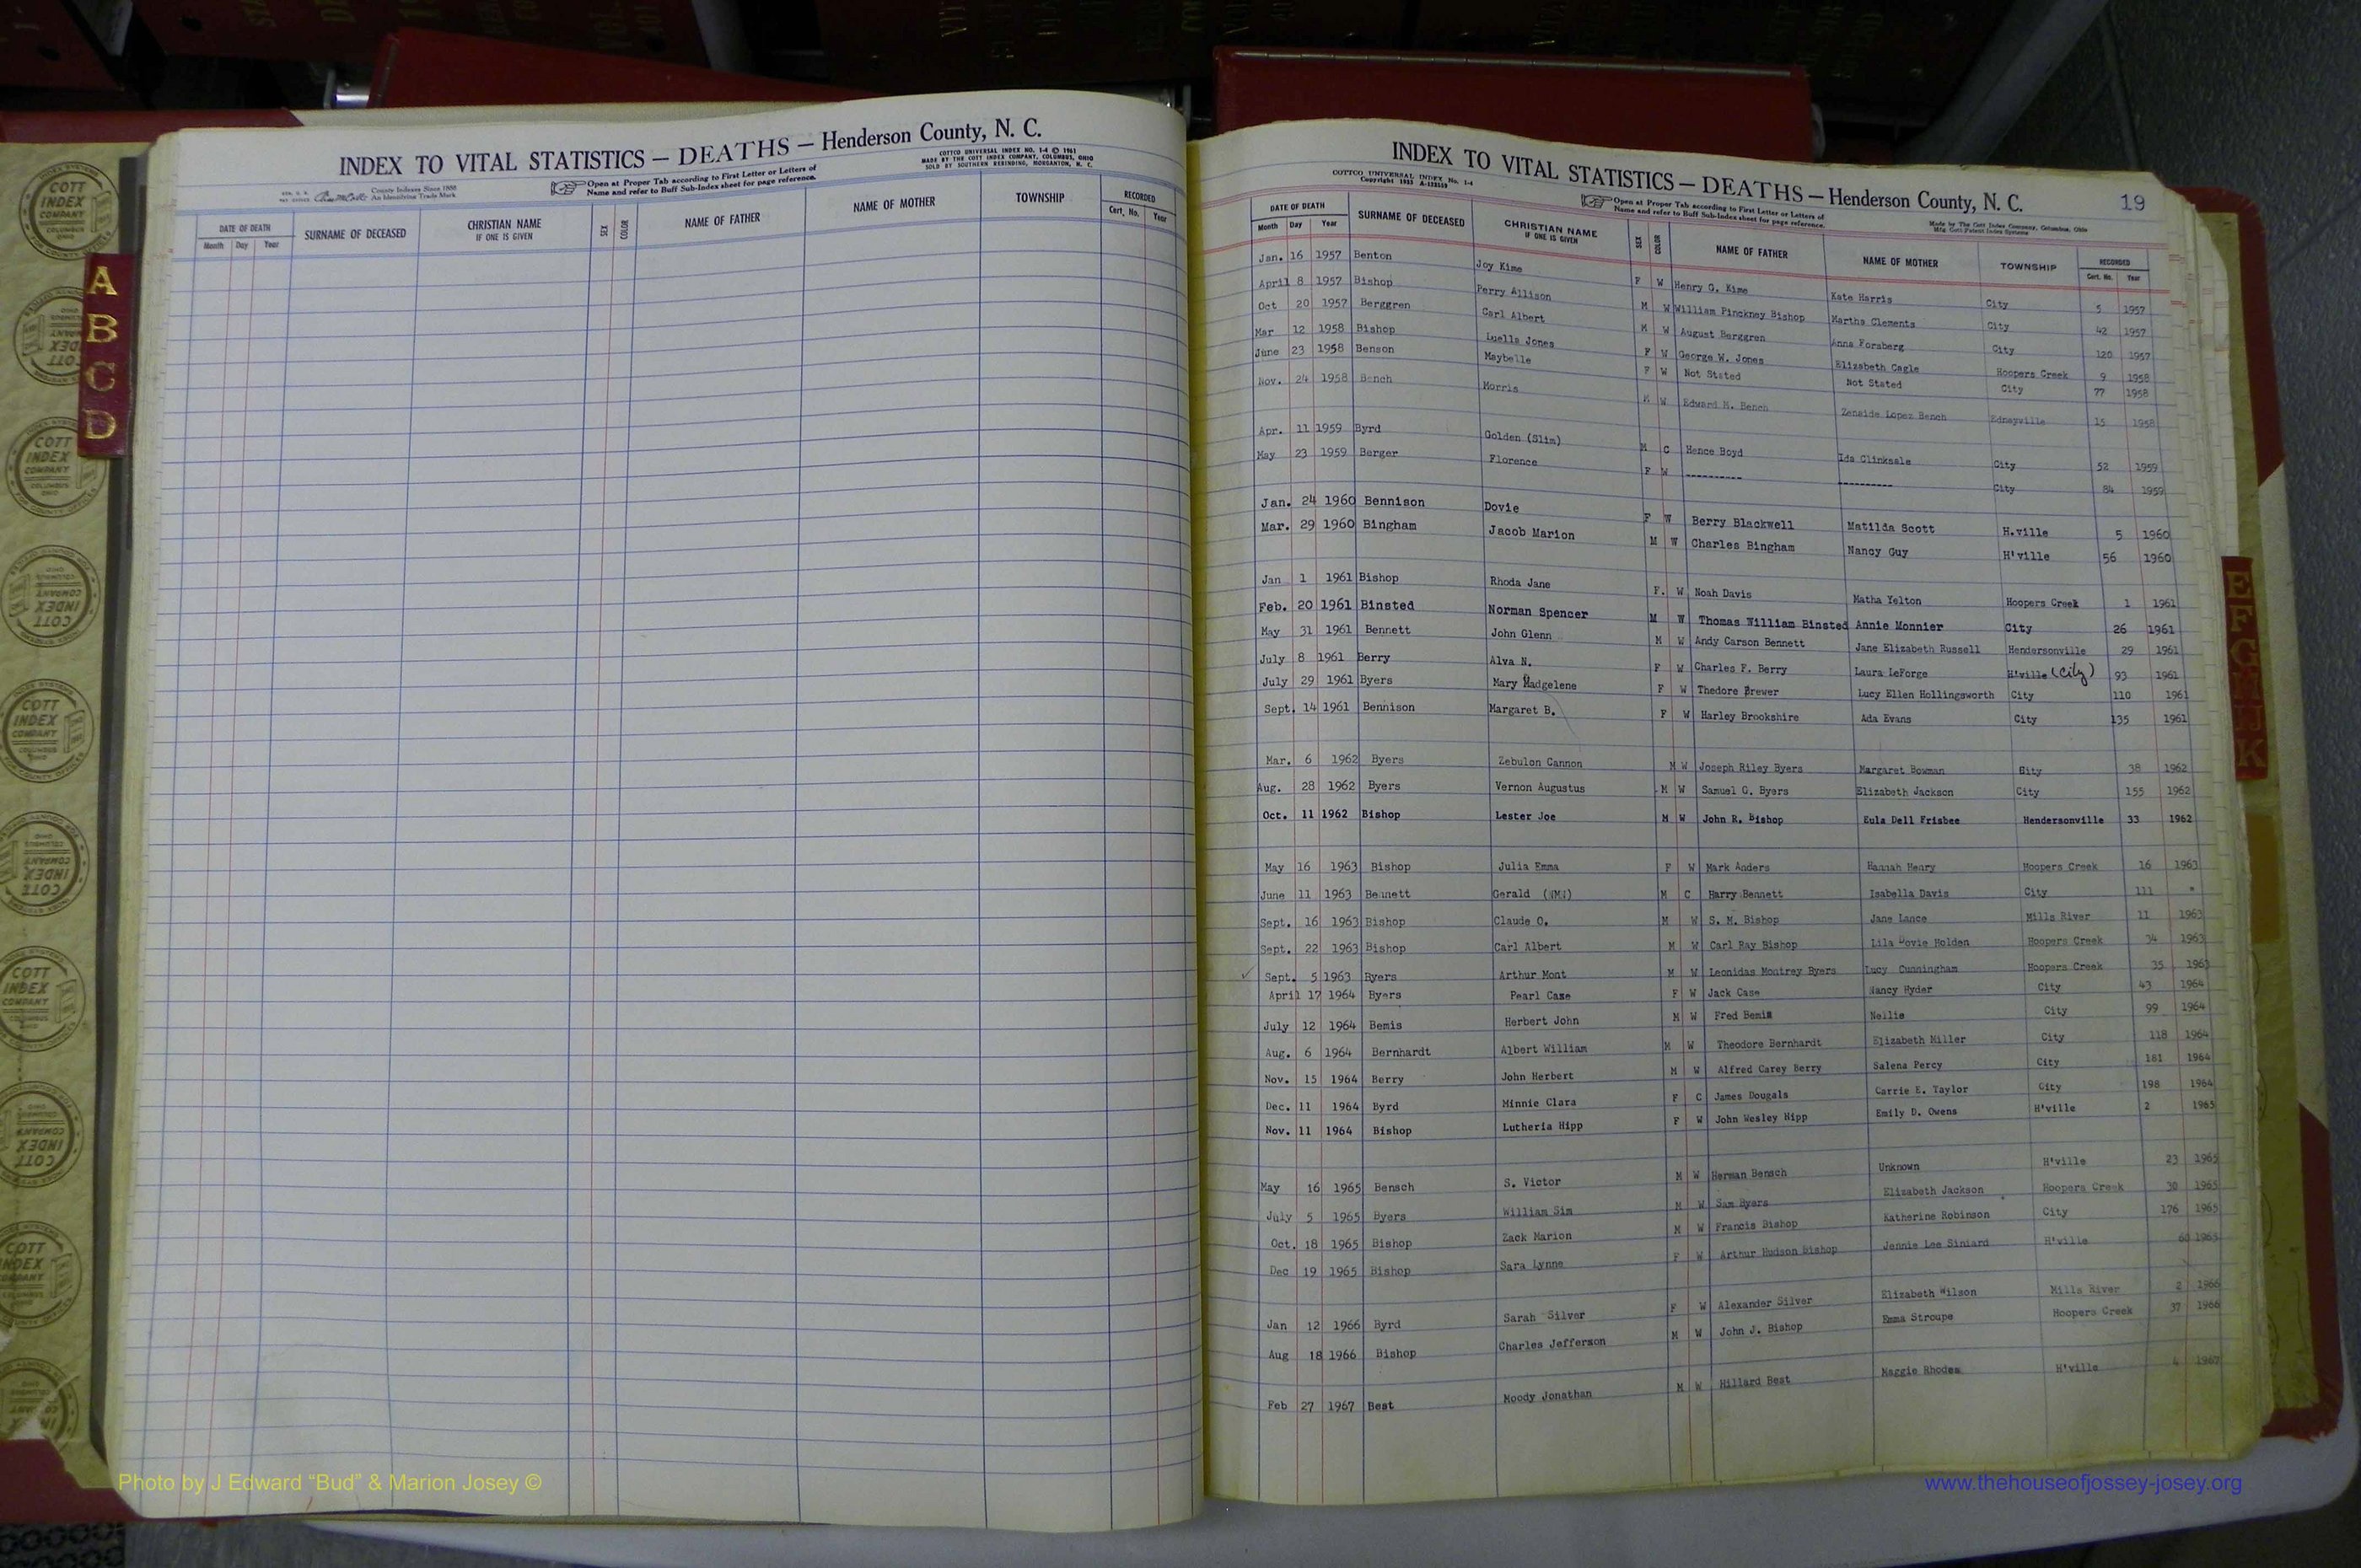 INDEX TO VITAL STATISTICS — DEATHS — Henderson County, N. C.
COTTCO UNIVERSAL INDEX NO. 1-4 © 1961
MADE BY THE COTT INDEX COMPANY, COLUMBUS, OHIO
SOLD BY SOUTHERN REBINDING, MORGANTON, N. C.
County Indexes Since 1888
An Identifying Trade Mark
Open at Proper Tab according to First Letter or Letters of
Name and refer to Buff Sub-Index sheet for page reference.
DATE OF DEATH SURNAME OF DECEASED CHRISTIAN NAME IF ONE IS GIVEN SEX COLOR NAME OF FATHER NAME OF MOTHER TOWNSHIP RECORDED
Month Day Year Cert. No. Year
A
B
C
D
COTT
INDEX
COMPANY
COLUMBUS
OHIO
INDEX TO VITAL STATISTICS — DEATHS — Henderson County, N. C. 19
COTTCO UNIVERSAL INDEX No. 1-4
Open at Proper Tab according to First Letter or Letters of
Name and refer to Buff Sub-Index sheet for page reference.
Made by The Cott Index Company, Columbus, Ohio
DATE OF DEATH SURNAME OF DECEASED CHRISTIAN NAME IF ONE IS GIVEN SEX COLOR NAME OF FATHER NAME OF MOTHER TOWNSHIP RECORDED
Month Day Year Cert. No. Year
Jan. 16 1957 Benton Joy Kime F W Henry G. Kime Kate Harris City 5 1957
April 8 1957 Bishop Perry Allison M W William Pinckney Bishop Martha Clements City 42 1957
Oct 20 1957 Berggren Carl Albert M W August Berggren Anna Forsberg City 120 1957
Mar 12 1958 Bishop Luella Jones F W George W. Jones Elizabeth Cagle Hoopers Creek 9 1958
June 23 1958 Benson Maybelle F W Not Stated Not Stated City 77 1958
Nov. 24 1958 Bench Morris M W Edward M. Bench Zenaide Lopez Bench Ednayville 15 1958
Apr. 11 1959 Byrd Golden (Slim) M C Hence Boyd Ida Clinksale City 52 1959
May 23 1959 Berger Florence F W ---------- ---------- City 84 1959
Jan. 24 1960 Bennison Dovie F W Berry Blackwell Matilda Scott H.ville 5 1960
Mar. 29 1960 Bingham Jacob Marion M W Charles Bingham Nancy Guy H'ville 56 1960
Jan 1 1961 Bishop Rhoda Jane F. W Noah Davis Matha Yelton Hoopers Creek 1 1961
Feb. 20 1961 Binsted Norman Spencer M W Thomas William Binsted Annie Monnier City 26 1961
May 31 1961 Bennett John Glenn M W Andy Carson Bennett Jane Elizabeth Russell Hendersonville 29 1961
July 8 1961 Berry Alva N. F W Charles F. Berry Laura LeForge H'ville (City) 93 1961
July 29 1961 Byers Mary Madgelene F W Thedore Brewer Lucy Ellen Hollingsworth City 110 1961
Sept. 14 1961 Bennison Margaret B. F W Harley Brookshire Ada Evans City 135 1961
Mar. 6 1962 Byers Zebulon Cannon M W Joseph Riley Byers Margaret Bowman City 38 1962
Aug. 28 1962 Byers Vernon Augustus M W Samuel G. Byers Elizabeth Jackson City 155 1962
Oct. 11 1962 Bishop Lester Joe M W John R. Bishop Eula Dell Frisbee Hendersonville 33 1962
May 16 1963 Bishop Julia Emma F W Mark Anders Hannah Henry Hoopers Creek 16 1963
June 11 1963 Bennett Gerald (NMN) M C Harry Bennett Isabella Davis City 111 "
Sept. 16 1963 Bishop Claude O. M W S. M. Bishop Jane Lance Mills River 11 1963
Sept. 22 1963 Bishop Carl Albert M W Carl Ray Bishop Lila Dovie Holden Hoopers Creek 34 1963
✓ Sept. 5 1963 Byers Arthur Mont M W Leonidas Montrey Byers Lucy Cunningham Hoopers Creek 35 1963
April 17 1964 Byers Pearl Case F W Jack Case Nancy Hyder City 43 1964
July 12 1964 Bemis Herbert John M W Fred Bemis Nellie City 99 1964
Aug. 6 1964 Bernhardt Albert William M W Theodore Bernhardt Elizabeth Miller City 118 1964
Nov. 15 1964 Berry John Herbert M W Alfred Carey Berry Salena Percy City 181 1964
Dec. 11 1964 Byrd Minnie Clara F C James Dougals Carrie E. Taylor City 198 1964
Nov. 11 1964 Bishop Lutheria Hipp F W John Wesley Hipp Emily D. Owens H'ville 2 1965
May 16 1965 Bensch S. Victor M W Herman Bensch Unknown H'ville 23 1965
July 5 1965 Byers William Sim M W Sam Byers Elizabeth Jackson Hoopers Creek 30 1965
Oct. 18 1965 Bishop Zack Marion M W Francis Bishop Katherine Robinson City 176 1965
Dec 19 1965 Bishop Sara Lynne F W Arthur Hudson Bishop Jennie Lee Siniard H'ville 60 1965
Jan 12 1966 Byrd Sarah Silver F W Alexander Silver Elizabeth Wilson Mills River 2 1966
Aug 18 1966 Bishop Charles Jefferson M W John J. Bishop Emma Stroupe Hoopers Creek 37 1966
Feb 27 1967 Best Moody Jonathan M W Hillard Best Maggie Rhodes H'ville 4 1967
E
F
G
H
IJ
K
Photo by J Edward “Bud” & Marion Josey ©
www.thehouseofjossey-josey.org